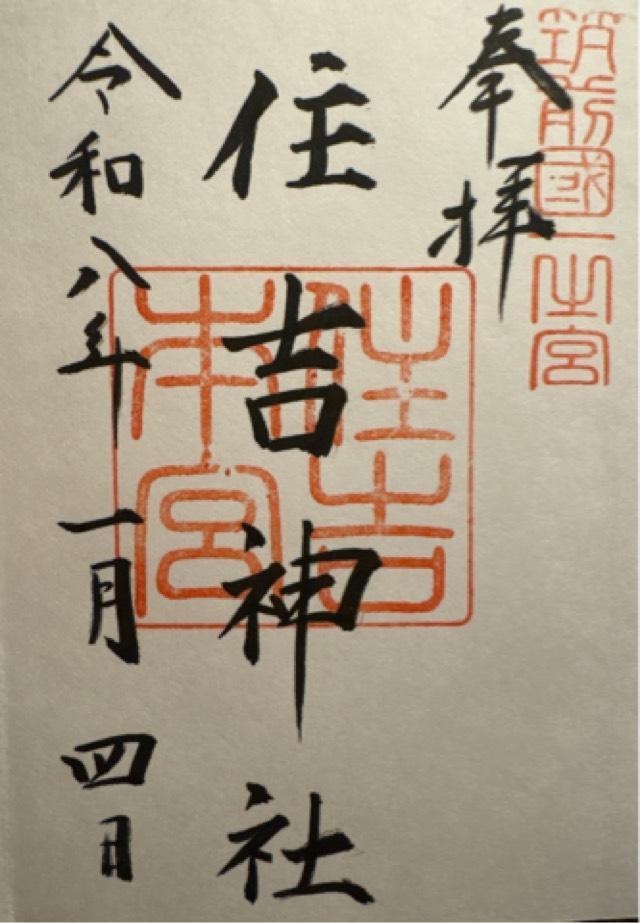 筑前國一之宮
奉拝
住吉神社
住吉本宮
令和八年一月四日